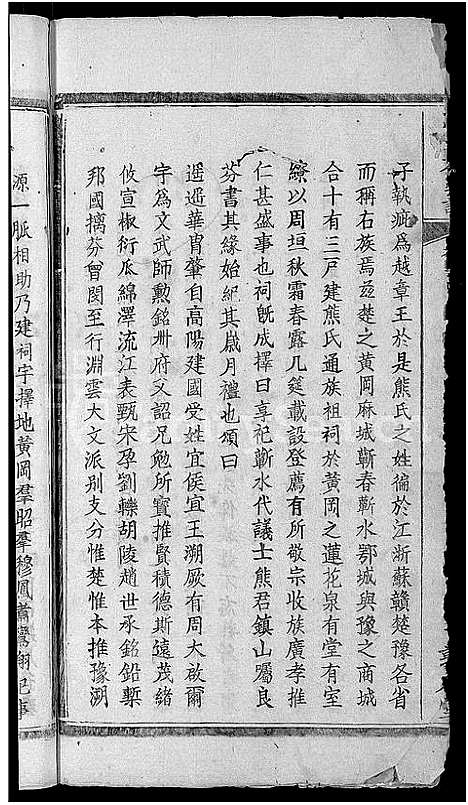 子執疵爲越章王於是熊氏之姓徧於江浙蘇贛楚豫各省
而稱右族焉茲楚之黃岡麻城蘄春蘄水鄂城與豫之商城
合十有三戶建熊氏通族祖祠於黃岡之蓮花泉有堂有室
繚以周垣秋霜春露几筵載設登薦有所敬宗收族廣孝推
仁甚盛事也祠旣成擇日享祀蘄水代議士熊君鎮山屬良
芬書其緣始紀其歲月禮也頌曰
遥遥華胄肇自高陽建國受姓宜侯宜王溯厥有周大啟爾
宇爲文武師勳銘卌府父詔兄勉所寶推賢積德斯遠茂緒
攸宣椒衍瓜綿澤流江表甄宋孕劉轢胡陵趙世承銘鉛槧
邦國摛芬曾閔至行淵雲大文派別支分惟楚惟本推豫溯
源一脈相助乃建祠宇擇地黃岡羣昭羣穆鳳翥鸞翔紀事